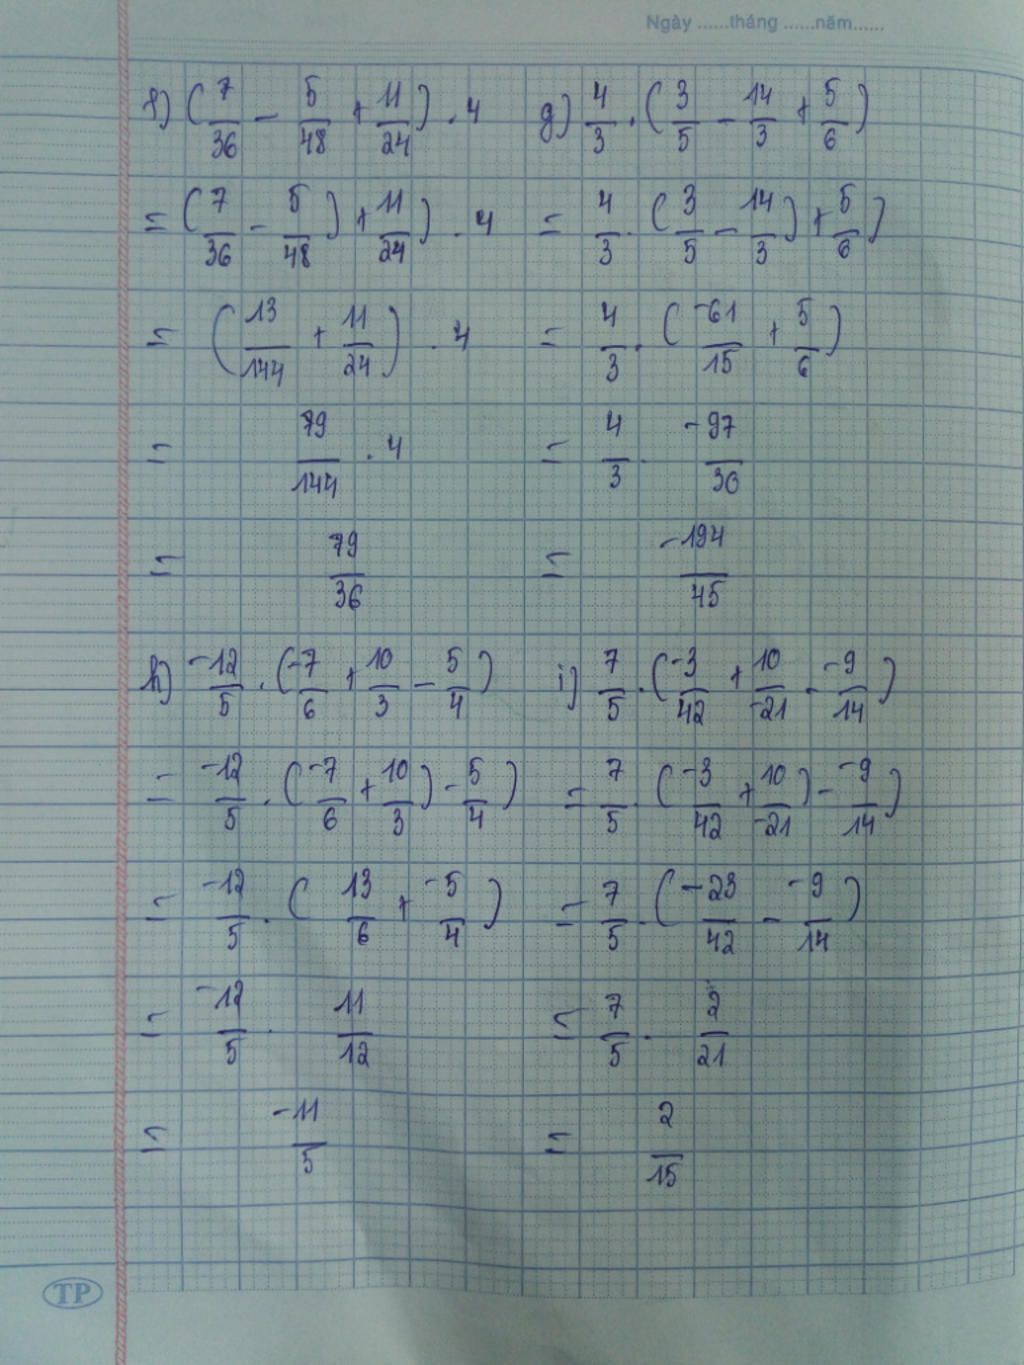 Ngày ......tháng ......năm......
f) (7/36 - 5/48 + 11/24) . 4
= (7/36 - 5/48) + 11/24) . 4
= (13/144 + 11/24) . 4
= 79/144 . 4
= 79/36
g) 4/3 . (3/5 - 14/3 + 5/6)
= 4/3 . (3/5 - 14/3) + 5/6)
= 4/3 . (-61/15 + 5/6)
= 4/3 . -97/30
= -194/45
h) -12/5 . (-7/6 + 10/3 - 5/4)
= -12/5 . (-7/6 + 10/3) - 5/4)
= -12/5 . (13/6 + -5/4)
= -12/5 . 11/12
= -11/5
i) 7/5 . (-3/42 + 10/-21 - -9/14)
= 7/5 . (-3/42 + 10/-21) - -9/14)
= 7/5 . (-23/42 - -9/14)
= 7/5 . 2/21
= 2/15
TP